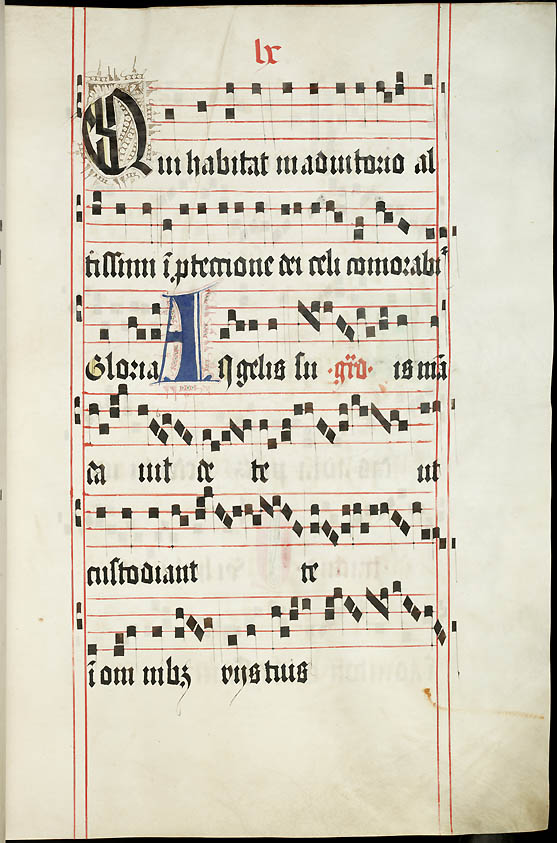 lx
Qui habitat in adiutorio al
tissimi ī ꝓteccione dei celi comorabiť
Gloria Angelis su ·gr̄d· is mā
da uit de te ut
custodiant te
ī om nibꝫ vijs tuis